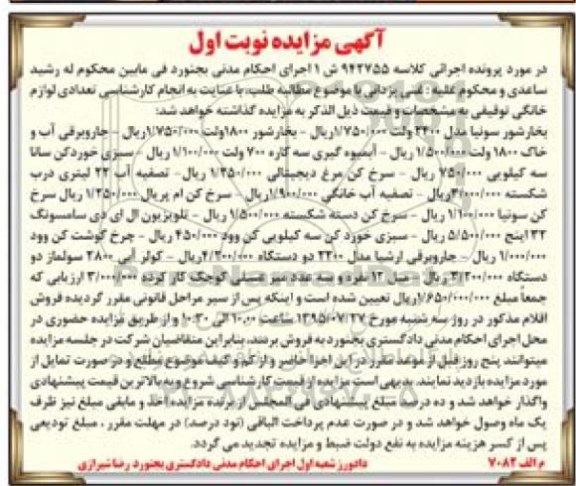 آگهی مزایده نوبت اول
در مورد پرونده اجرائی کلاسه ۹۴۲۷۵۵ ش ۱ اجرای احکام مدنی بجنورد فی مابین محکوم له رشید
ساعدی و محکوم علیه یزدانی با موضوع مطالبه طلب، با عنایت به انجام کارشناسی تعدادی لوازم
خانگی توقیفی به مشخصات و قیمت ذیل الذکر به مزایده گذاشته خواهد شد:
بخارشور سونیا مدل ۲۴۰۰ ولت ۱/۷۵۰/۰۰۰ ریال - بخارشور ۱۸۰۰ ولت ۱/۷۵۰/۰۰۰ ریال - جاروبرقی آب و
خاک ۱۸۰۰ ولت ۱/۵۰۰/۰۰۰ ریال - آبمیوه گیری سه کاره ۷۰۰ ولت ۱/۱۰۰/۰۰۰ ریال - سبزی خوردکن سانا
سه کیلویی ۷۵۰/۰۰۰ ریال - سرخ کن مرغ دیجیتالی ۱/۲۵۰/۰۰۰ ریال - تصفیه آب ۲۲ لیتری درب
شکسته ۳/۰۰۰/۰۰۰ ریال - تصفیه آب خانگی ۱/۹۰۰/۰۰۰ ریال - سرخ کن ام پریال ۱/۲۵۰/۰۰۰ ریال سرخ
کن سونیا ۱/۱۰۰/۰۰۰ ریال - سرخ کن دسته شکسته ۱/۵۰۰/۰۰۰ ریال - تلویزیون ال ای دی سامسونگ
۳۲ اینچ ۵/۵۰۰/۰۰۰ ریال - سبزی خورد کن سه کیلویی کن وود ۴۵۰/۰۰۰ ریال - چرخ گوشت کن وود
۱/۰۰۰/۰۰۰ ریال - جاروبرقی ارشیا مدل ۲۲۰۰ دو دستگاه ۴/۲۰۰/۰۰۰ ریال - کولر آبی ۲۸۰۰ سولماز دو
دستگاه ۳/۲۰۰/۰۰۰ ریال - مبل ۱۲ نفره و سه عدد میز عسلی کوچک کار کرده ۳/۰۰۰/۰۰۰ ارزیابی که
جمعاً مبلغ ریال تعیین شده است و اینکه پس از سیر مراحل قانونی مقرر گردیده فروش
اقلام مذکور در روز سه شنبه مورخ ۱۳۹۵/۰۷/۲۷ ساعت ۱۰.۰۰ الی ۱۰:۳۰ و از طریق مزایده حضوری در
محل اجرای احکام مدنی دادگستری بجنورد به فروش برسد. بنابراین متقاضیان شرکت در جلسه مزایده
میتوانند پنج روز قبل از موعد مقرر در این اجرا حاضر و از کم و کیف موضوع مطلع و در صورت تمایل از
مورد مزایده بازدید نمایند. بدیهی است مزایده از قیمت کارشناسی شروع و به بالاترین قیمت پیشنهادی
واگذار خواهد شد و ده درصد مبلغ پیشنهادی فی المجلس از برنده مزایده اخذ و مابقی مبلغ نیز ظرف
یک ماه وصول خواهد شد و در صورت عدم پرداخت الباقی (نود درصد) در مهلت مقرر، مبلغ تودیعی
پس از کسر هزینه مزایده به نفع دولت ضبط و مزایده تجدید می گردد.
م الف ۷۰۸۲ دادورز شعبه اول اجرای احکام مدنی دادگستری بجنورد رضا شیرازی